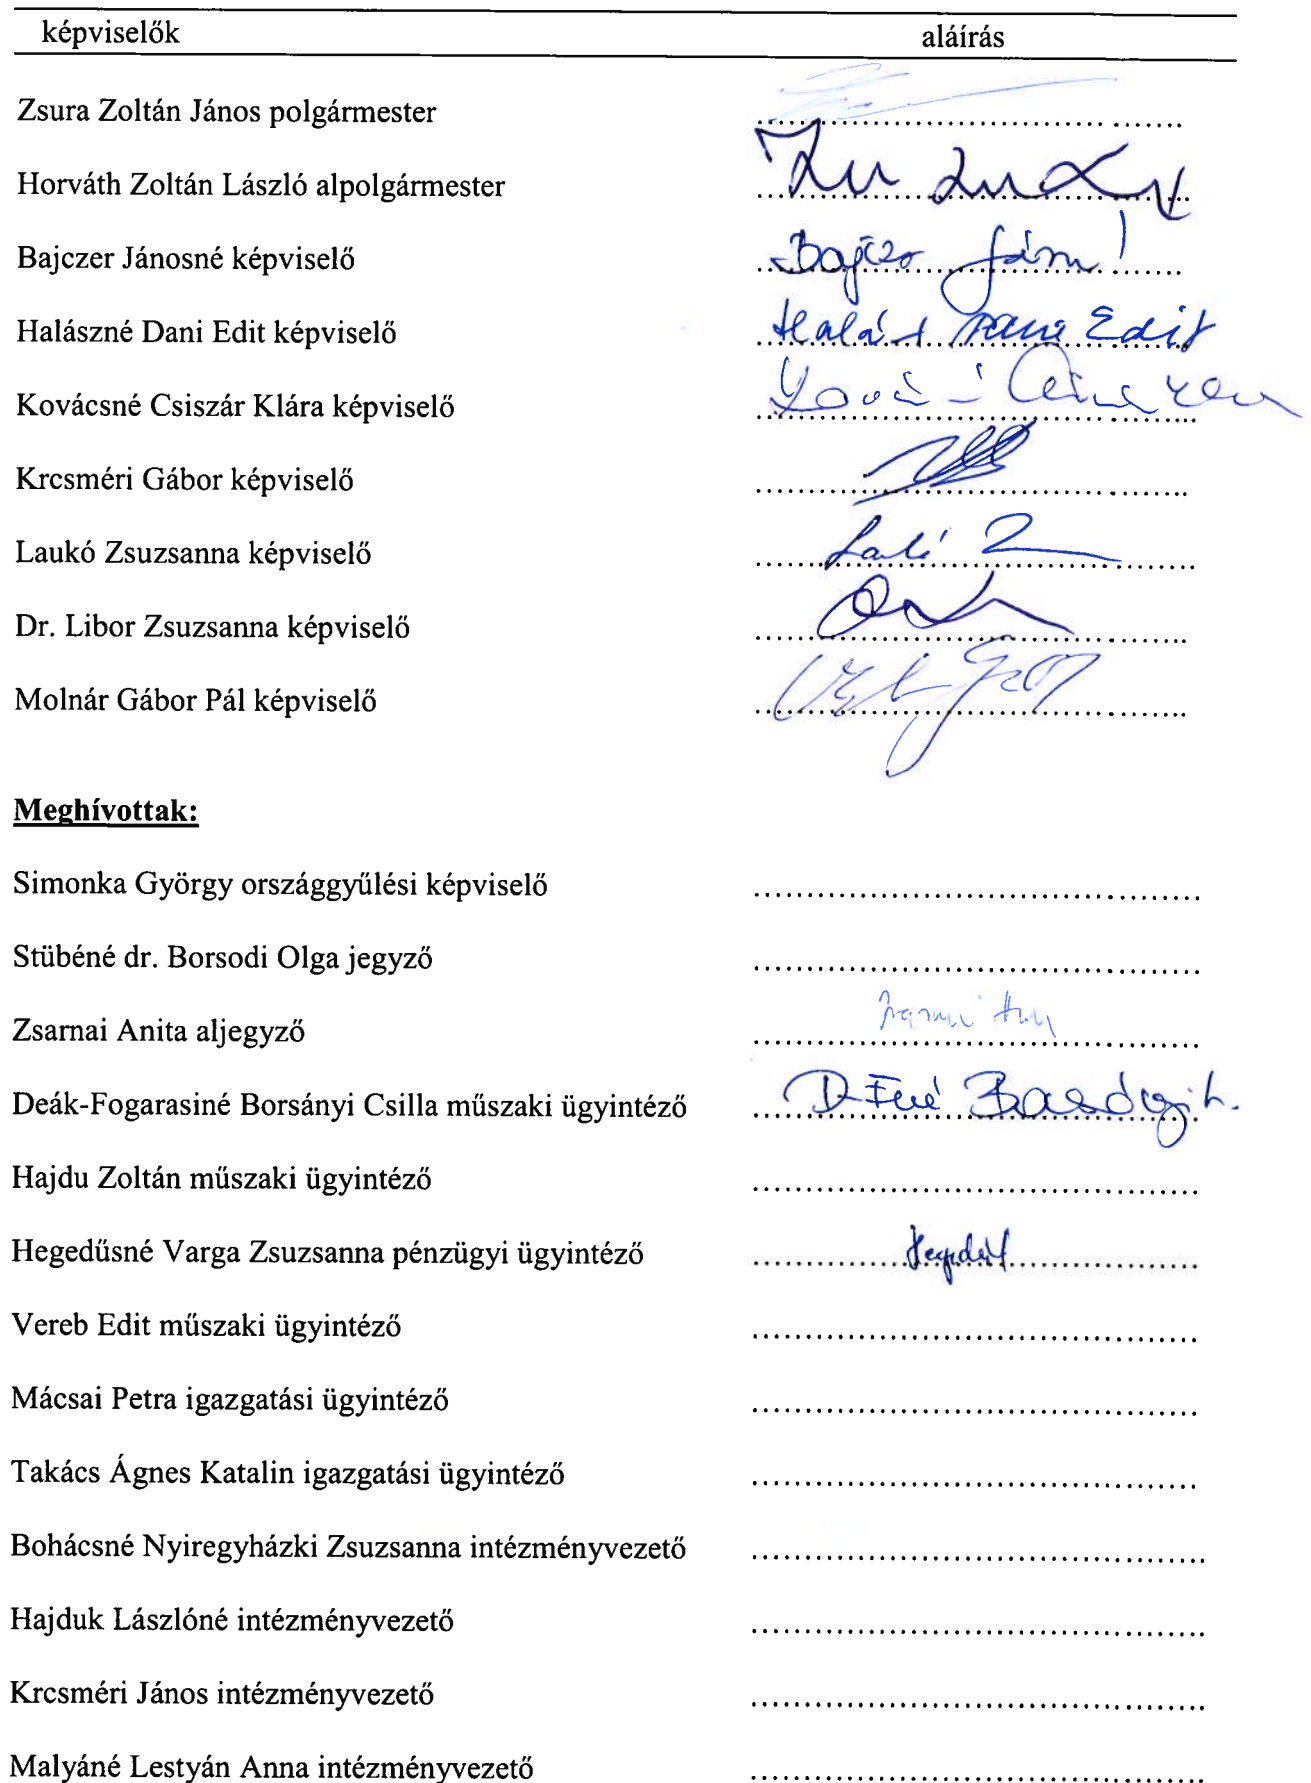 képviselők aláírás
Zsura Zoltán János polgármester
Horváth Zoltán László alpolgármester
Bajczer Jánosné képviselő
Halászné Dani Edit képviselő Edit
Kovácsné Csiszár Klára képviselő
Krcsméri Gábor képviselő
Laukó Zsuzsanna képviselő
Dr. Libor Zsuzsanna képviselő
Molnár Gábor Pál képviselő
Meghívottak:
Simonka György országgyűlési képviselő ........................................
Stübéné dr. Borsodi Olga jegyző ........................................
Zsarnai Anita aljegyző
Deák-Fogarasiné Borsányi Csilla műszaki ügyintéző
Hajdu Zoltán műszaki ügyintéző ........................................
Hegedűsné Varga Zsuzsanna pénzügyi ügyintéző
Vereb Edit műszaki ügyintéző ........................................
Mácsai Petra igazgatási ügyintéző ........................................
Takács Ágnes Katalin igazgatási ügyintéző ........................................
Bohácsné Nyiregyházki Zsuzsanna intézményvezető ........................................
Hajduk Lászlóné intézményvezető ........................................
Krcsméri János intézményvezető ........................................
Malyáné Lestyán Anna intézményvezető ........................................